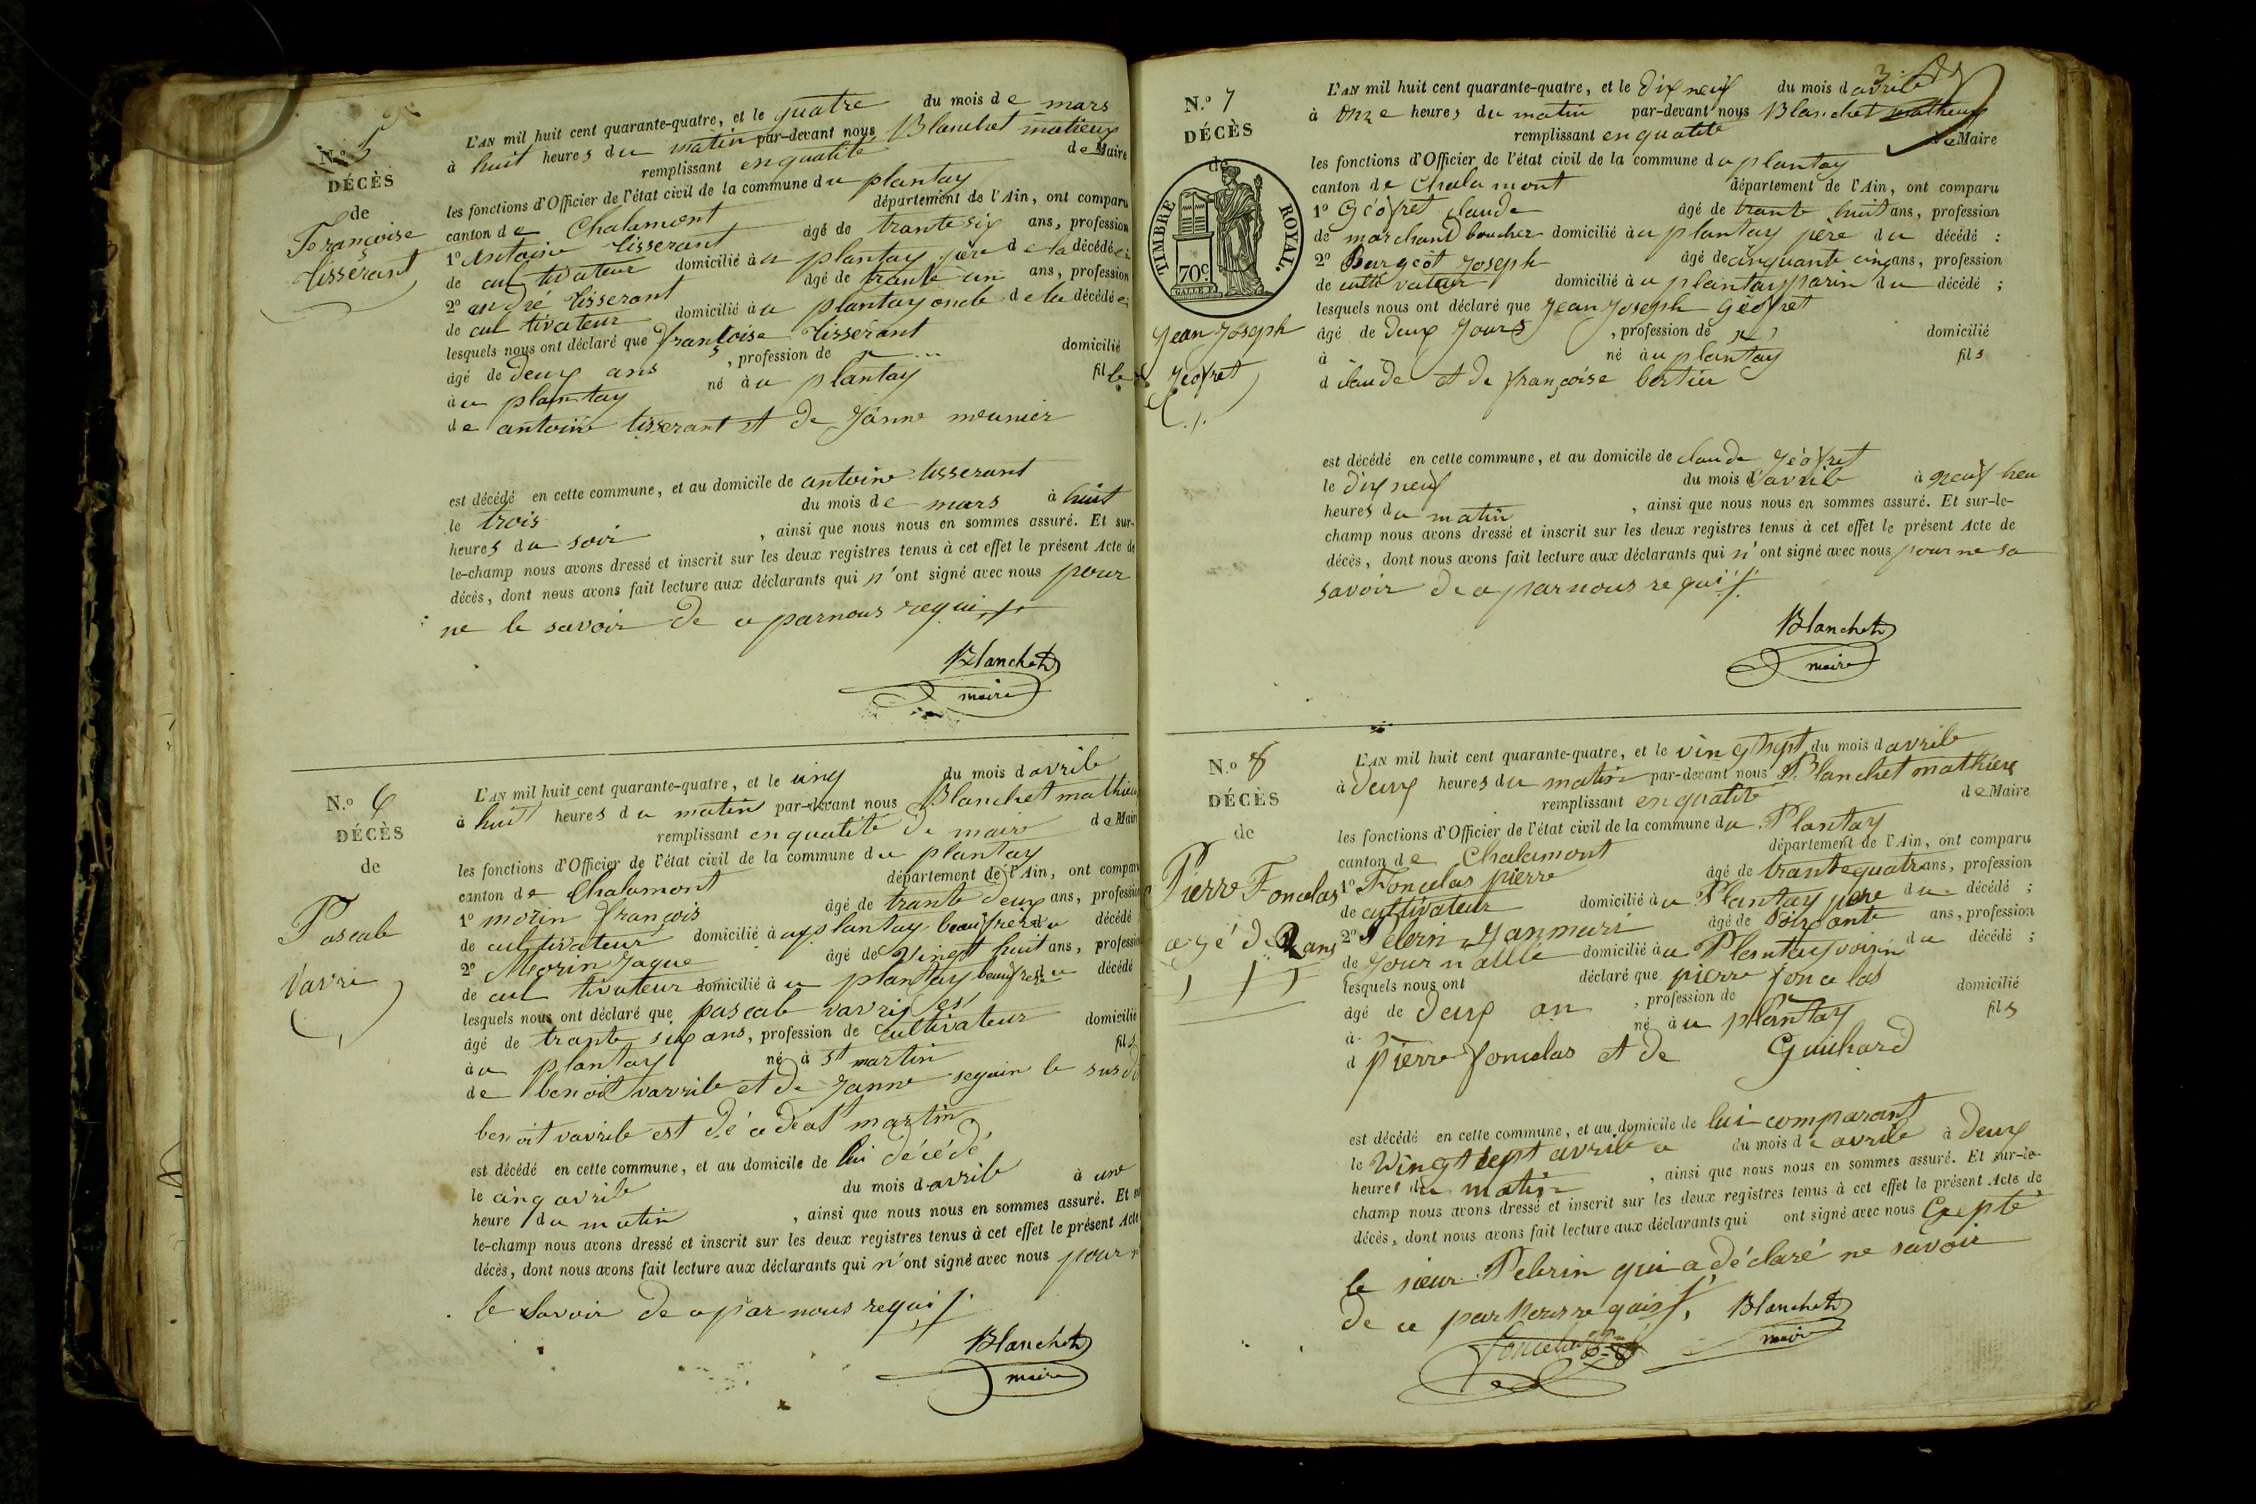 N.o 5
DÉCÈS
de
Françoise
tisserant
L'AN mil huit cent quarante-quatre, et le quatre du mois de mars
à huit heures du matin par-devant nous Blanchet matieux
remplissant en qualité de Maire
les fonctions d'Officier de l'état civil de la commune du plantay
canton de Chalamont département de l'Ain, ont comparu
1o Antoine tisserant âgé de trante six ans, profession
de cul tivateur domicilié à u plantay père de la décédée
2o andré tisserant âgé de trante un ans, profession
de cul tivateur domicilié à u plantay oncle de la décédée
lesquels nous ont déclaré que françoise tisserant
âgé de deux ans , profession de domicilié
à u plantay né à u plantay fille
de antoine tisserant et de Janne meunier
est décédé en cette commune, et au domicile de antoine tisserant
le trois du mois de mars à huit
heures du soir , ainsi que nous nous en sommes assuré. Et sur-
le-champ nous avons dressé et inscrit sur les deux registres tenus à cet effet le présent Acte de
décès, dont nous avons fait lecture aux déclarants qui n'ont signé avec nous pour
ne le savoir de ce par nous requi
Blanchet
maire
N.o 6
DÉCÈS
de
Pascale
Vavri
L'AN mil huit cent quarante-quatre, et le cinq du mois d avrile
à huit heures du matin par-devant nous Blanchet mathieu
remplissant en qualité de maire de Mair
les fonctions d'Officier de l'état civil de la commune du plantay
canton de Chalamont département de l'Ain, ont compar
1o morin françois âgé de trante deux ans, profession
de cultivateur domicilié à u plantay beaufrere du décédé
2o Morin Jaque âgé de vingt huit ans, profession
de cul tivateur domicilié à u plantay beaufrere du décédé
lesquels nous ont déclaré que pascale vavri
âgé de trante six ans, profession de cultivateur domicilié
à u plantay né à st martin fils
de benoit vavrile et de Janne seguin le susdi
benoit vavrile est dé cedé a st martin
est décédé en cette commune, et au domicile de lui décédé
le cinq avrile du mois d avrile à une
heure du matin , ainsi que nous nous en sommes assuré. Et sur
le-champ nous avons dressé et inscrit sur les deux registres tenus à cet effet le présent Acte
décès, dont nous avons fait lecture aux déclarants qui n'ont signé avec nous pour n
le savoir de ce par nous requis
Blanchet
maire
N.o 7
DÉCÈS
de
TIMBRE ROYAL.
70c.
Jean Joseph
Jéofret
L'AN mil huit cent quarante-quatre, et le dix neuf du mois d avrile
à onze heures du matin par-devant nous Blanchet mathieux
remplissant en qualité de Maire
les fonctions d'Officier de l'état civil de la commune du plantay
canton de Chalamont département de l'Ain, ont comparu
1o Géofret claude âgé de trante huit ans, profession
de marchand boucher domicilié à u plantay pere du décédé :
2o Burgeot Joseph âgé de cinquante cinq ans, profession
de cultivateur domicilié à u plantay parin du décédé ;
lesquels nous ont déclaré que Jean Joseph Géofret
âgé de deux Jours , profession de domicilié
à né à u plantay fils
d claude et de françoise bertier
est décédé en cette commune, et au domicile de claude Géofret
le dix neuf du mois d'avrile à neuf heu
heures du matin , ainsi que nous nous en sommes assuré. Et sur-le-
champ nous avons dressé et inscrit sur les deux registres tenus à cet effet le présent Acte de
décès, dont nous avons fait lecture aux déclarants qui n'ont signé avec nous pour ne sa
savoir de ce par nous requis
Blanchet
maire
N.o 8
DÉCÈS
de
Pierre Foncelas
agé de 2 ans
L'AN mil huit cent quarante-quatre, et le vingt sept du mois d avrile
à deux heures du matin par-devant nous Blanchet mathieux
remplissant en qualité de Maire
les fonctions d'Officier de l'état civil de la commune du Plantay
canton de Chalamont département de l'Ain, ont comparu
1o Foncelas pierre âgé de trante quatre ans, profession
de cultivateur domicilié à u Plantay pere du décédé ;
2o Pelerin Janmari âgé de soixante ans, profession
de Journallie domicilié à u Plantay voisin du décédé ;
lesquels nous ont déclaré que pierre foncelas
âgé de deux an , profession de domicilié
à né à u plantay fils
d pierre foncelas et de Guichard
est décédé en cette commune, et au domicile de lui comparant
le vingt sept avrile du mois de avrile à deux
heures du matin , ainsi que nous nous en sommes assuré. Et sur-le-
champ nous avons dressé et inscrit sur les deux registres tenus à cet effet le présent Acte de
décès, dont nous avons fait lecture aux déclarants qui ont signé avec nous Exepté
le sieur Pelerin qui a déclaré ne savoir
de ce par nous requis, Blanchet
maire